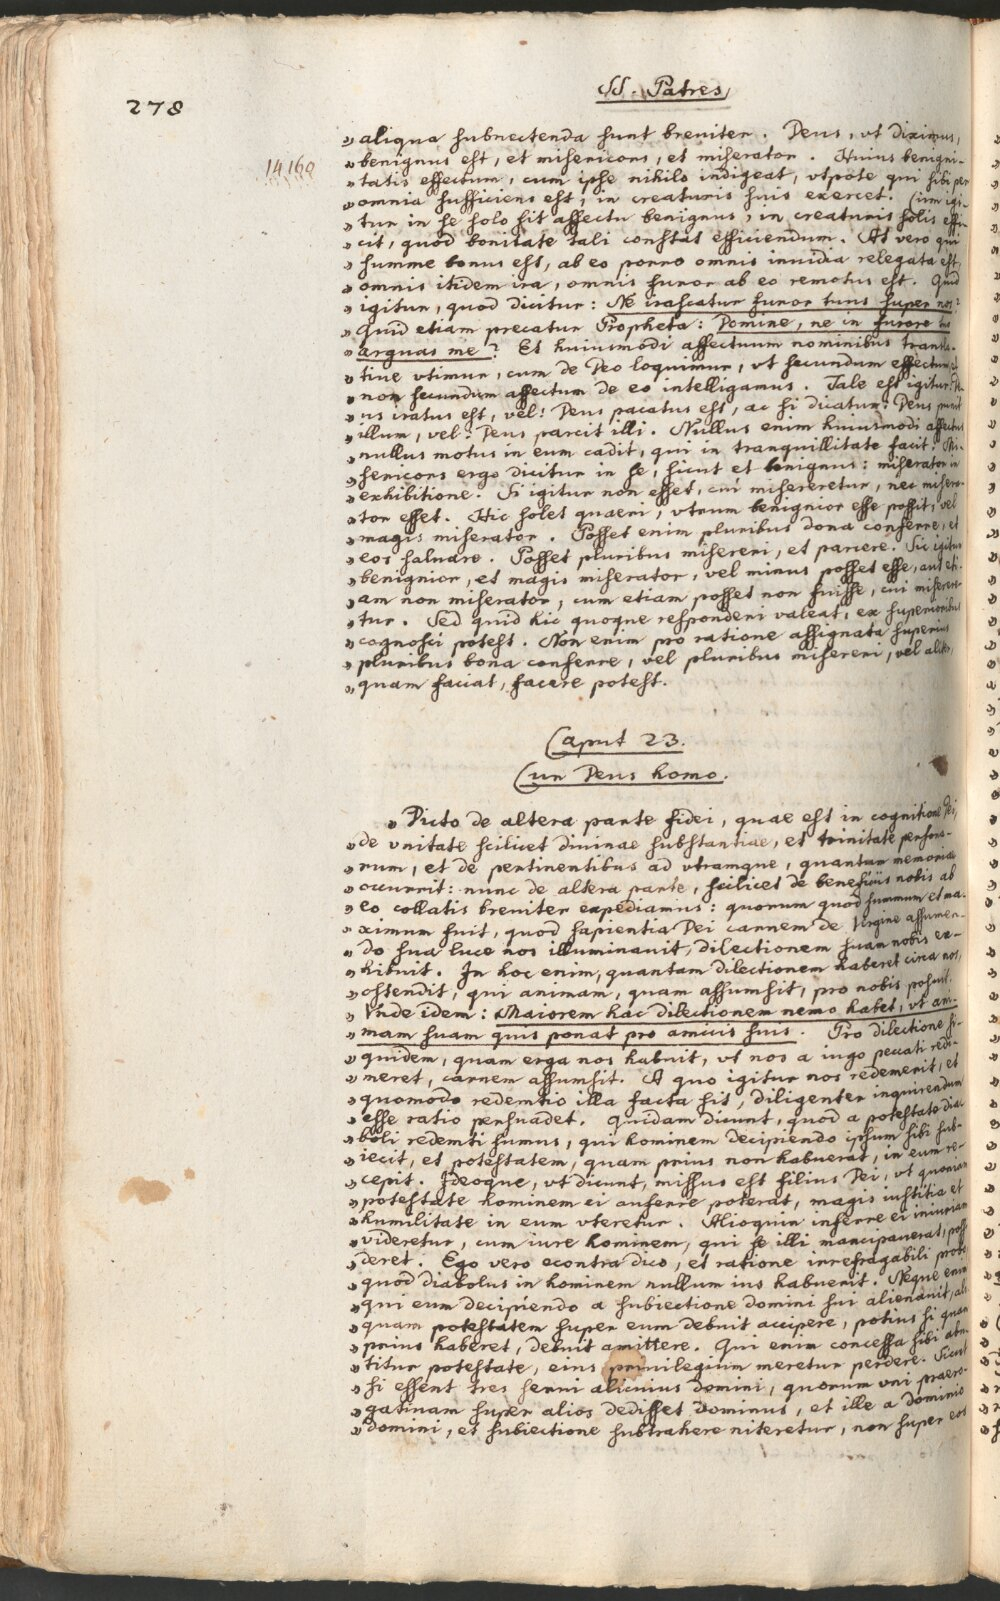 278
SS. Patres
14160
» aliqua subnectenda sunt breviter. Deus, vt diximus,
» benignus est, et misericors, et miserator. Huius benigni-
» tatis effectum, cum ipse nihilo indigeat, vtpote qui sibi per
» omnia sufficiens est, in creaturis suis exercet. Cum igi-
» tur in se solo sit affectu benignus, in creaturis solis effi-
» cit, quod bonitate tali constat efficiendum. At vero qui
» summe bonus est, ab eo porro omnis inuidia relegata est,
» omnis itidem ira, omnis furor ab eo remotus est. Quid
» igitur, quod dicitur: Ne irascatur furor tuus super nos?
» Quid etiam precatur Propheta: Domine, ne in furore tuo
» arguas me? Et huiusmodi affectuum nominibus transla-
» tiue vtimur, cum de Deo loquimur, vt secundum effectum, et
» non secundum affectum de eo intelligamus. Tale est igitur: De-
» us iratus est, vel: Deus pacatus est, ac si dicatur: Deus punit
» illum, vel: Deus parcit illi. Nullus enim huiusmodi affectus
» nullus motus in eum cadit, qui in tranquillitate facit. Mi-
» sericors ergo dicitur in se, sicut et benignus: miserator in
» exhibitione. Si igitur non esset, cui misereretur, nec misera-
» tor esset. Hic solet quaeri, vtrum benignior esse possit, vel
» magis miserator. Posset enim pluribus dona conferre, et
» eos saluare. Posset pluribus misereri, et parcere. Sic igitur
» benignior, et magis miserator, vel minus posset esse, aut eti-
» am non miserator, cum etiam posset non fuisse, cui miserere-
» tur. Sed quid hic quoque responderi valeat, ex superioribus
» cognosci potest. Non enim pro ratione assignata superius
» pluribus bona conferre, vel pluribus misereri, vel aliter,
» quam faciat, facere potest.
Caput 23.
Cur Deus homo.
» Dicto de altera parte fidei, quae est in cognitione Dei,
» de vnitate scilicet diuinae substantiae, et trinitate persona-
» rum, et de pertinentibus ad vtramque, quantum memoriae
» occurrit: nunc de altera parte, scilicet de beneficiis nobis ab
» eo collatis breviter expediamus: quorum quod summum et ma-
» ximum fuit, quod sapientia Dei carnem de Virgine assumen-
» do sua luce nos illuminauit, dilectionem suam nobis ex-
» hibuit. In hoc enim, quantam dilectionem haberet circa nos,
» ostendit, qui animam, quam assumsit, pro nobis posuit.
» Vnde idem: Maiorem hac dilectionem nemo habet, vt ani-
» mam suam quis ponat pro amicis suis. Pro dilectione si-
» quidem, quam erga nos habuit, vt nos a iugo peccati redi-
» meret, carnem assumsit. A quo igitur nos redemerit, et
» quomodo redemtio illa facta sit, diligenter inquirendum
» esse ratio persuadet. Quidam dicunt, quod a potestate dia-
» boli redemti sumus, qui hominem decipiendo ipsum sibi sub-
» iecit, et potestatem, quam prius non habuerat, in eum re-
» cepit. Ideoque, vt dicunt, missus est filius Dei, vt quoniam
» potestate hominem ei auferre poterat, magis iustitia et
» humilitate in eum vteretur. Alioquin inferre ei iniuriam
» videretur, cum iure hominem, qui se illi mancipauerat, possi-
» deret. Ego vero econtra dico, et ratione irrefragabili probo
» quod diabolus in hominem nullum ius habuerit. Neque enim
» qui eum decipiendo a subiectione domini sui alienauit, ali-
» quam potestatem super eum debuit accipere, potius si quam
» prius haberet, debuit amittere. Qui enim concessa sibi abu-
» titur potestate, eius priuilegium meretur perdere. Sicut
» si essent tres serui alicuius domini, quorum vni praero-
» gatiuam super alios dedisset Dominus, et ille a dominio
» domini, et subiectione subtrahere niteretur, non super eos